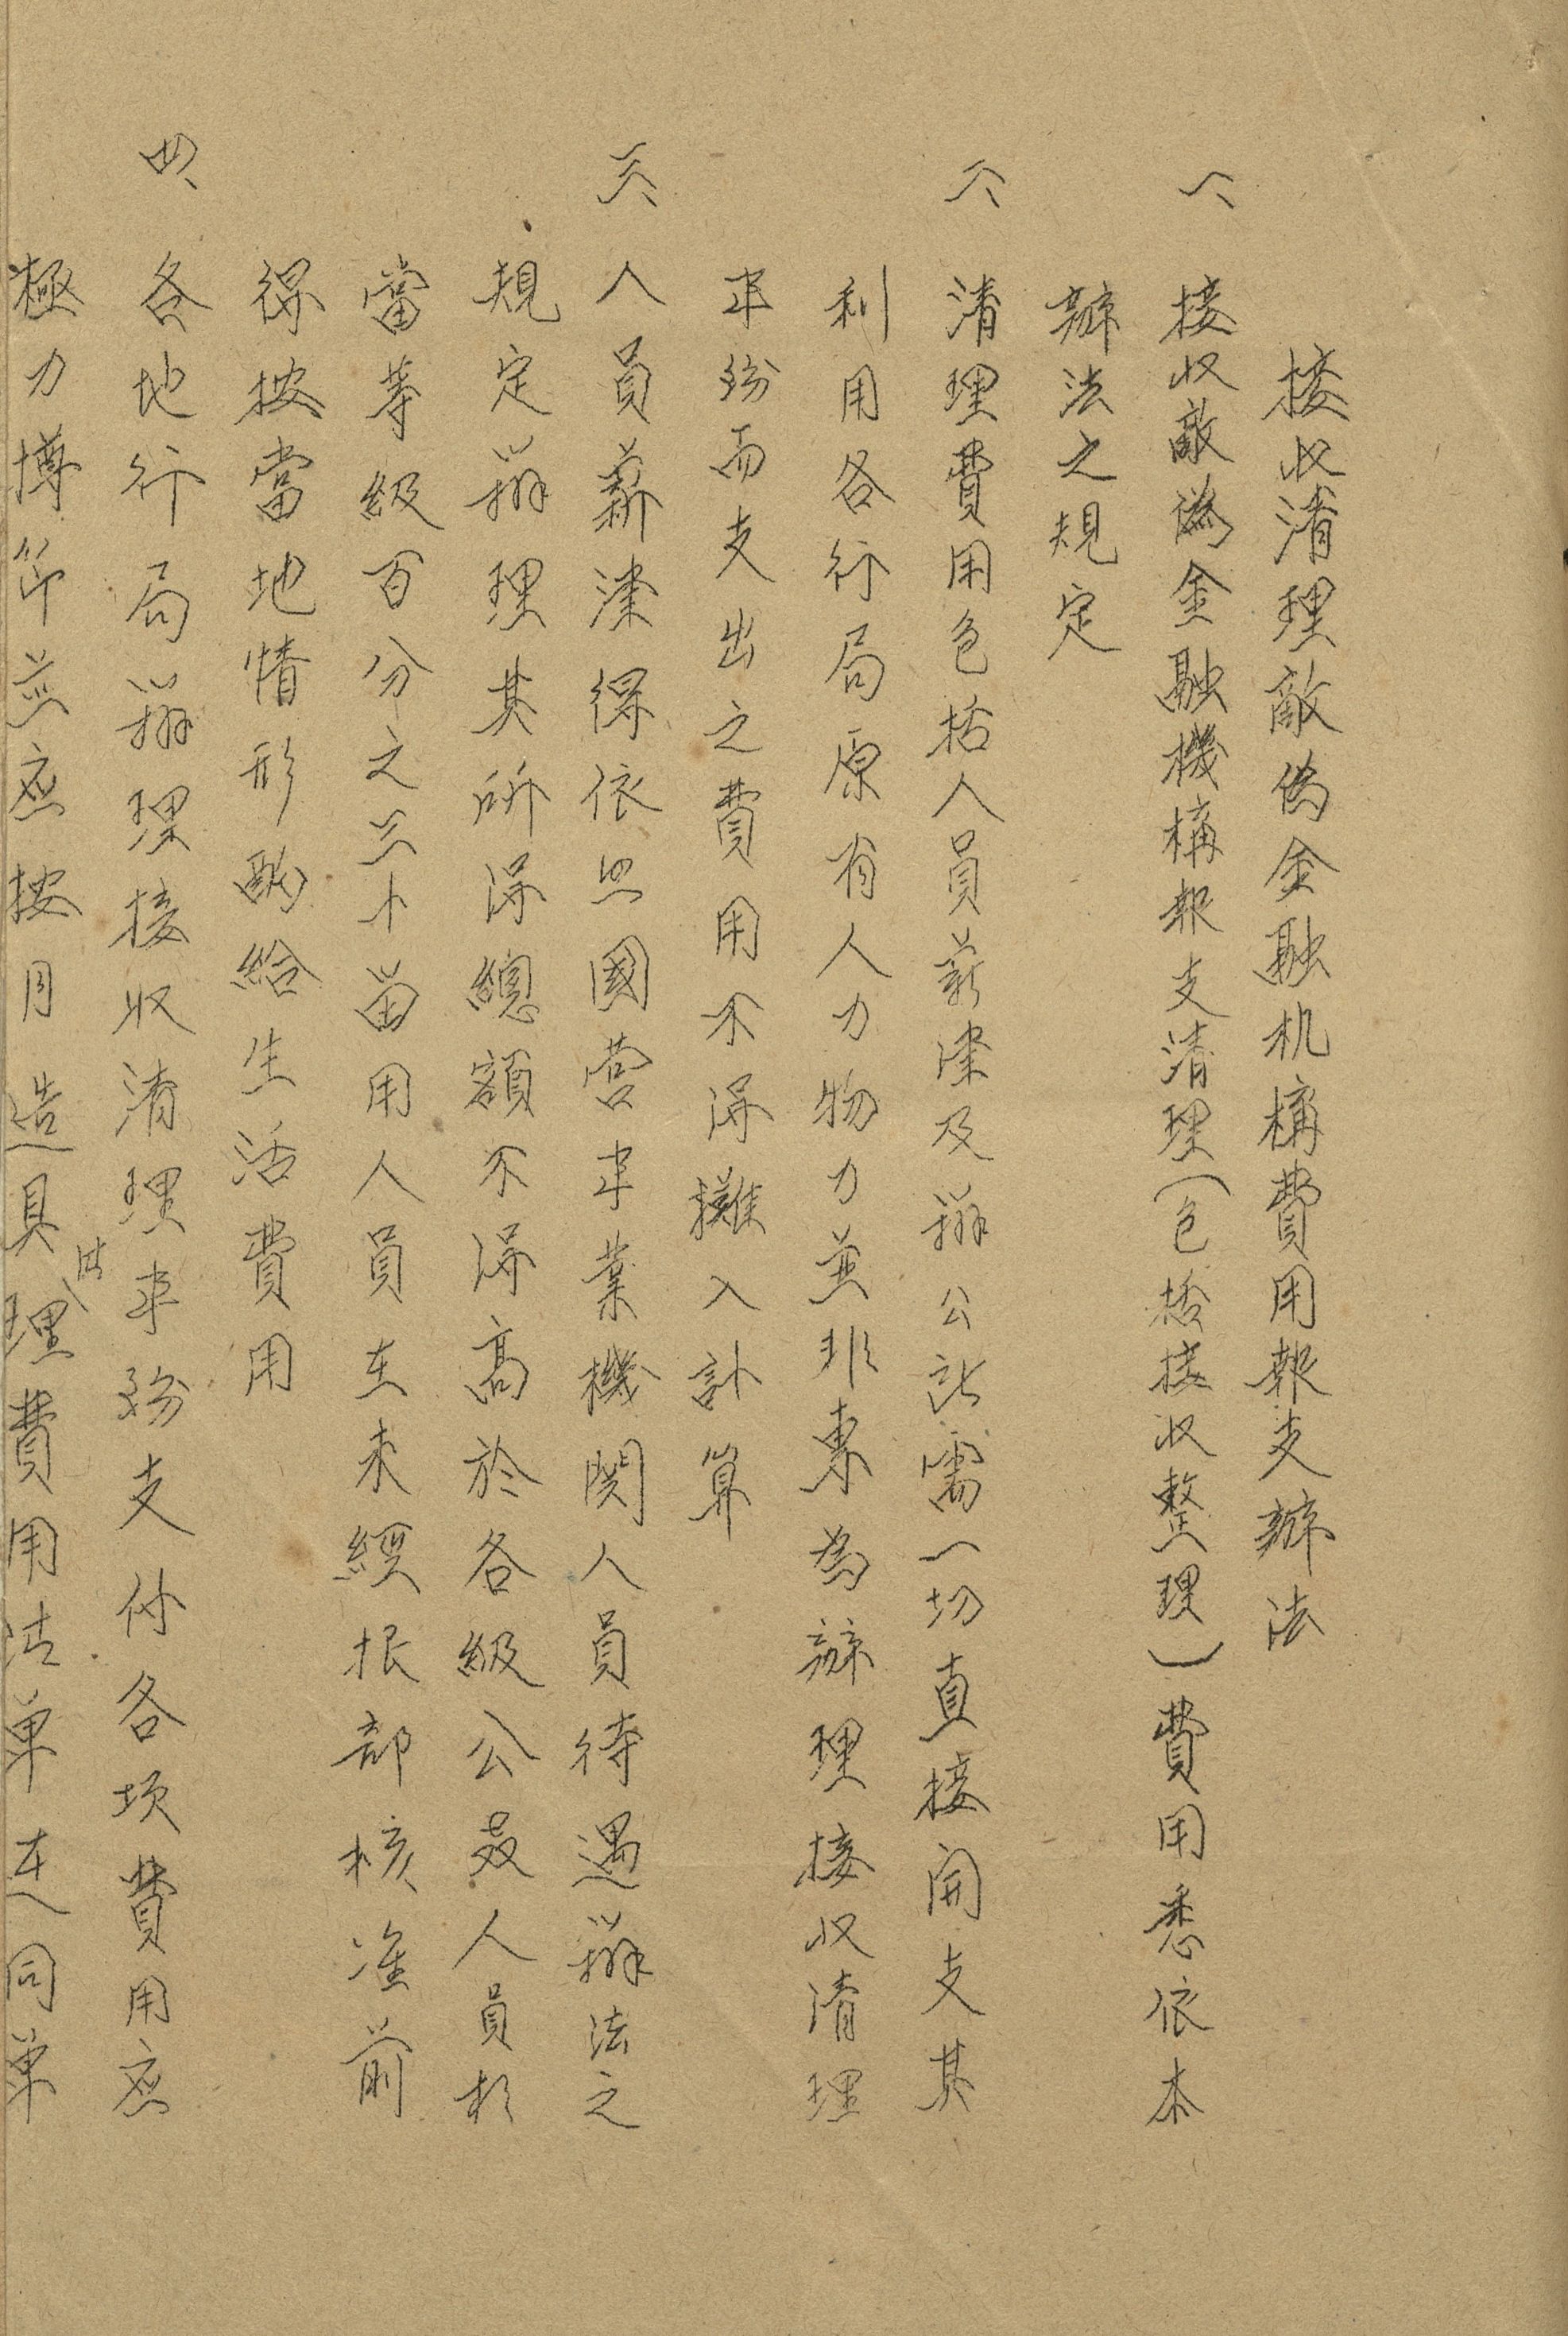 接收清理敵偽金融机構費用報支辦法
一、接收敵偽金融機構報支清理(包括接收整理)費用悉依本
辦法之規定
二、清理費用包括人員薪津及辦公所需一切直接開支其
利用各行局原有人力物力並非專為辦理接收清理
事務而支出之費用不得攤入計算
三、人員薪津得依照國营事業機関人員待遇辦法之
規定辦理其所得總額不得高於各級公教人員於
當等級百分之三十留用人員在未經报部核准前
得按當地情形酌給生活費用
四、各地行局辦理接收清理事務支付各項費用应
極力撙節並应按月造具清理費用清单連同单